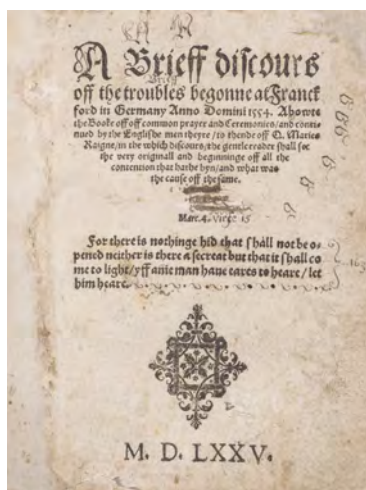 A Brieff discours
off the troubles begonne at Franck
ford in Germany Anno Domini 1554. Abowte
the Booke off off common prayer and Ceremonies / and conti
nued by the Englishe men theyre / to thende off Q. Maries
Raigne / in the which discours / the gentle reader shall see
the very originall and beginninge off all the
contention that hathe byn / and what was
the cause off the same.
Marc. 4. 
For there is nothinge hid that shall not be o-
pened neither is there a secreat but that it shall co
me to light / yff anie man haue eares to heare / let
him heare.
M. D. LXXV.